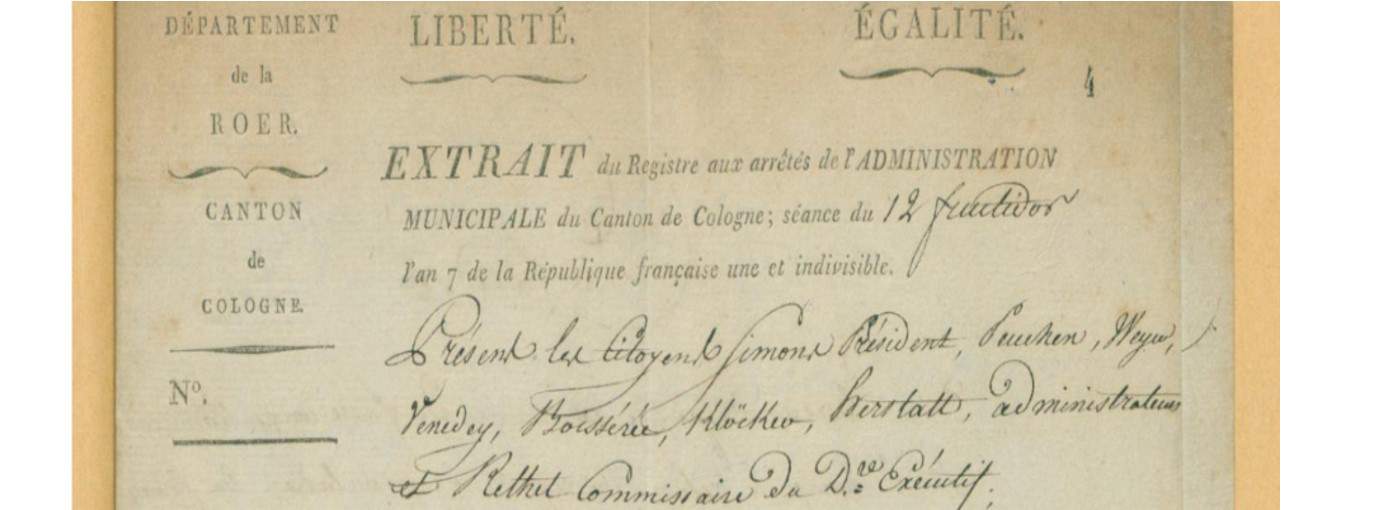 DÉPARTEMENT
de la
ROER.
CANTON
de
COLOGNE.
Nº.
LIBERTÉ.
ÉGALITÉ.
4
EXTRAIT du Registre aux arrêtés de l'ADMINISTRATION
MUNICIPALE du Canton de Cologne; séance du 12 fructidor
l'an 7 de la République française une et indivisible.
Présent les Citoyens Simons Président, Peuchen, Weyer,
Venedey, Boisserée, Klöcker, Herstatt, administrateurs
et Rethel Commissaire du D.re Exécutif.